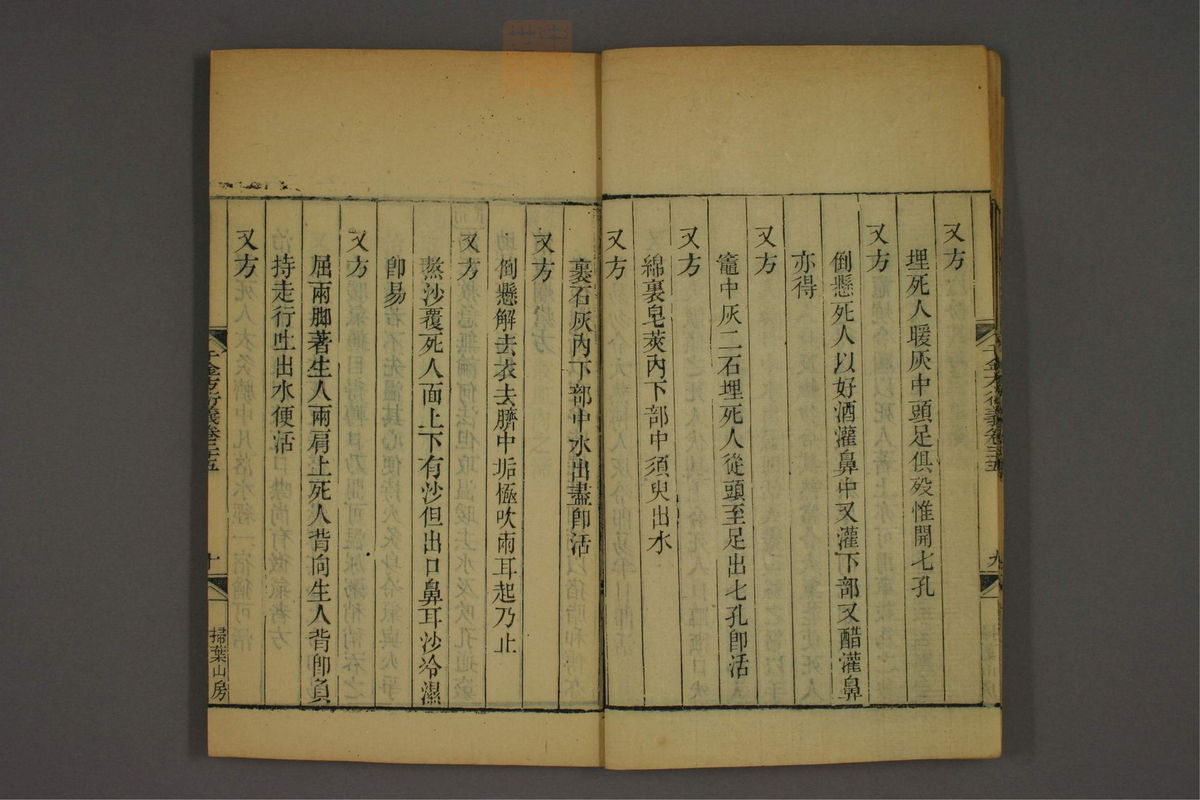 又方
埋死人暖灰中頭足俱歿惟開七孔
又方
倒懸死人以好酒灌鼻中又灌下部又醋灌鼻
亦得
又方
竈中灰二石埋死人從頭至足出七孔卽活
又方
綿裹皂莢內下部中須臾出水
又方
裹石灰內下部中水出盡卽活
又方
倒懸解去衣去臍中垢極吹兩耳起乃止
又方
熬沙覆死人面上下有沙但出口鼻耳沙冷濕
卽易
又方
屈兩脚著生人兩肩上死人背向生人背卽負
持走行吐出水便活
又方
千金方衍義卷二十五
十
掃葉山房